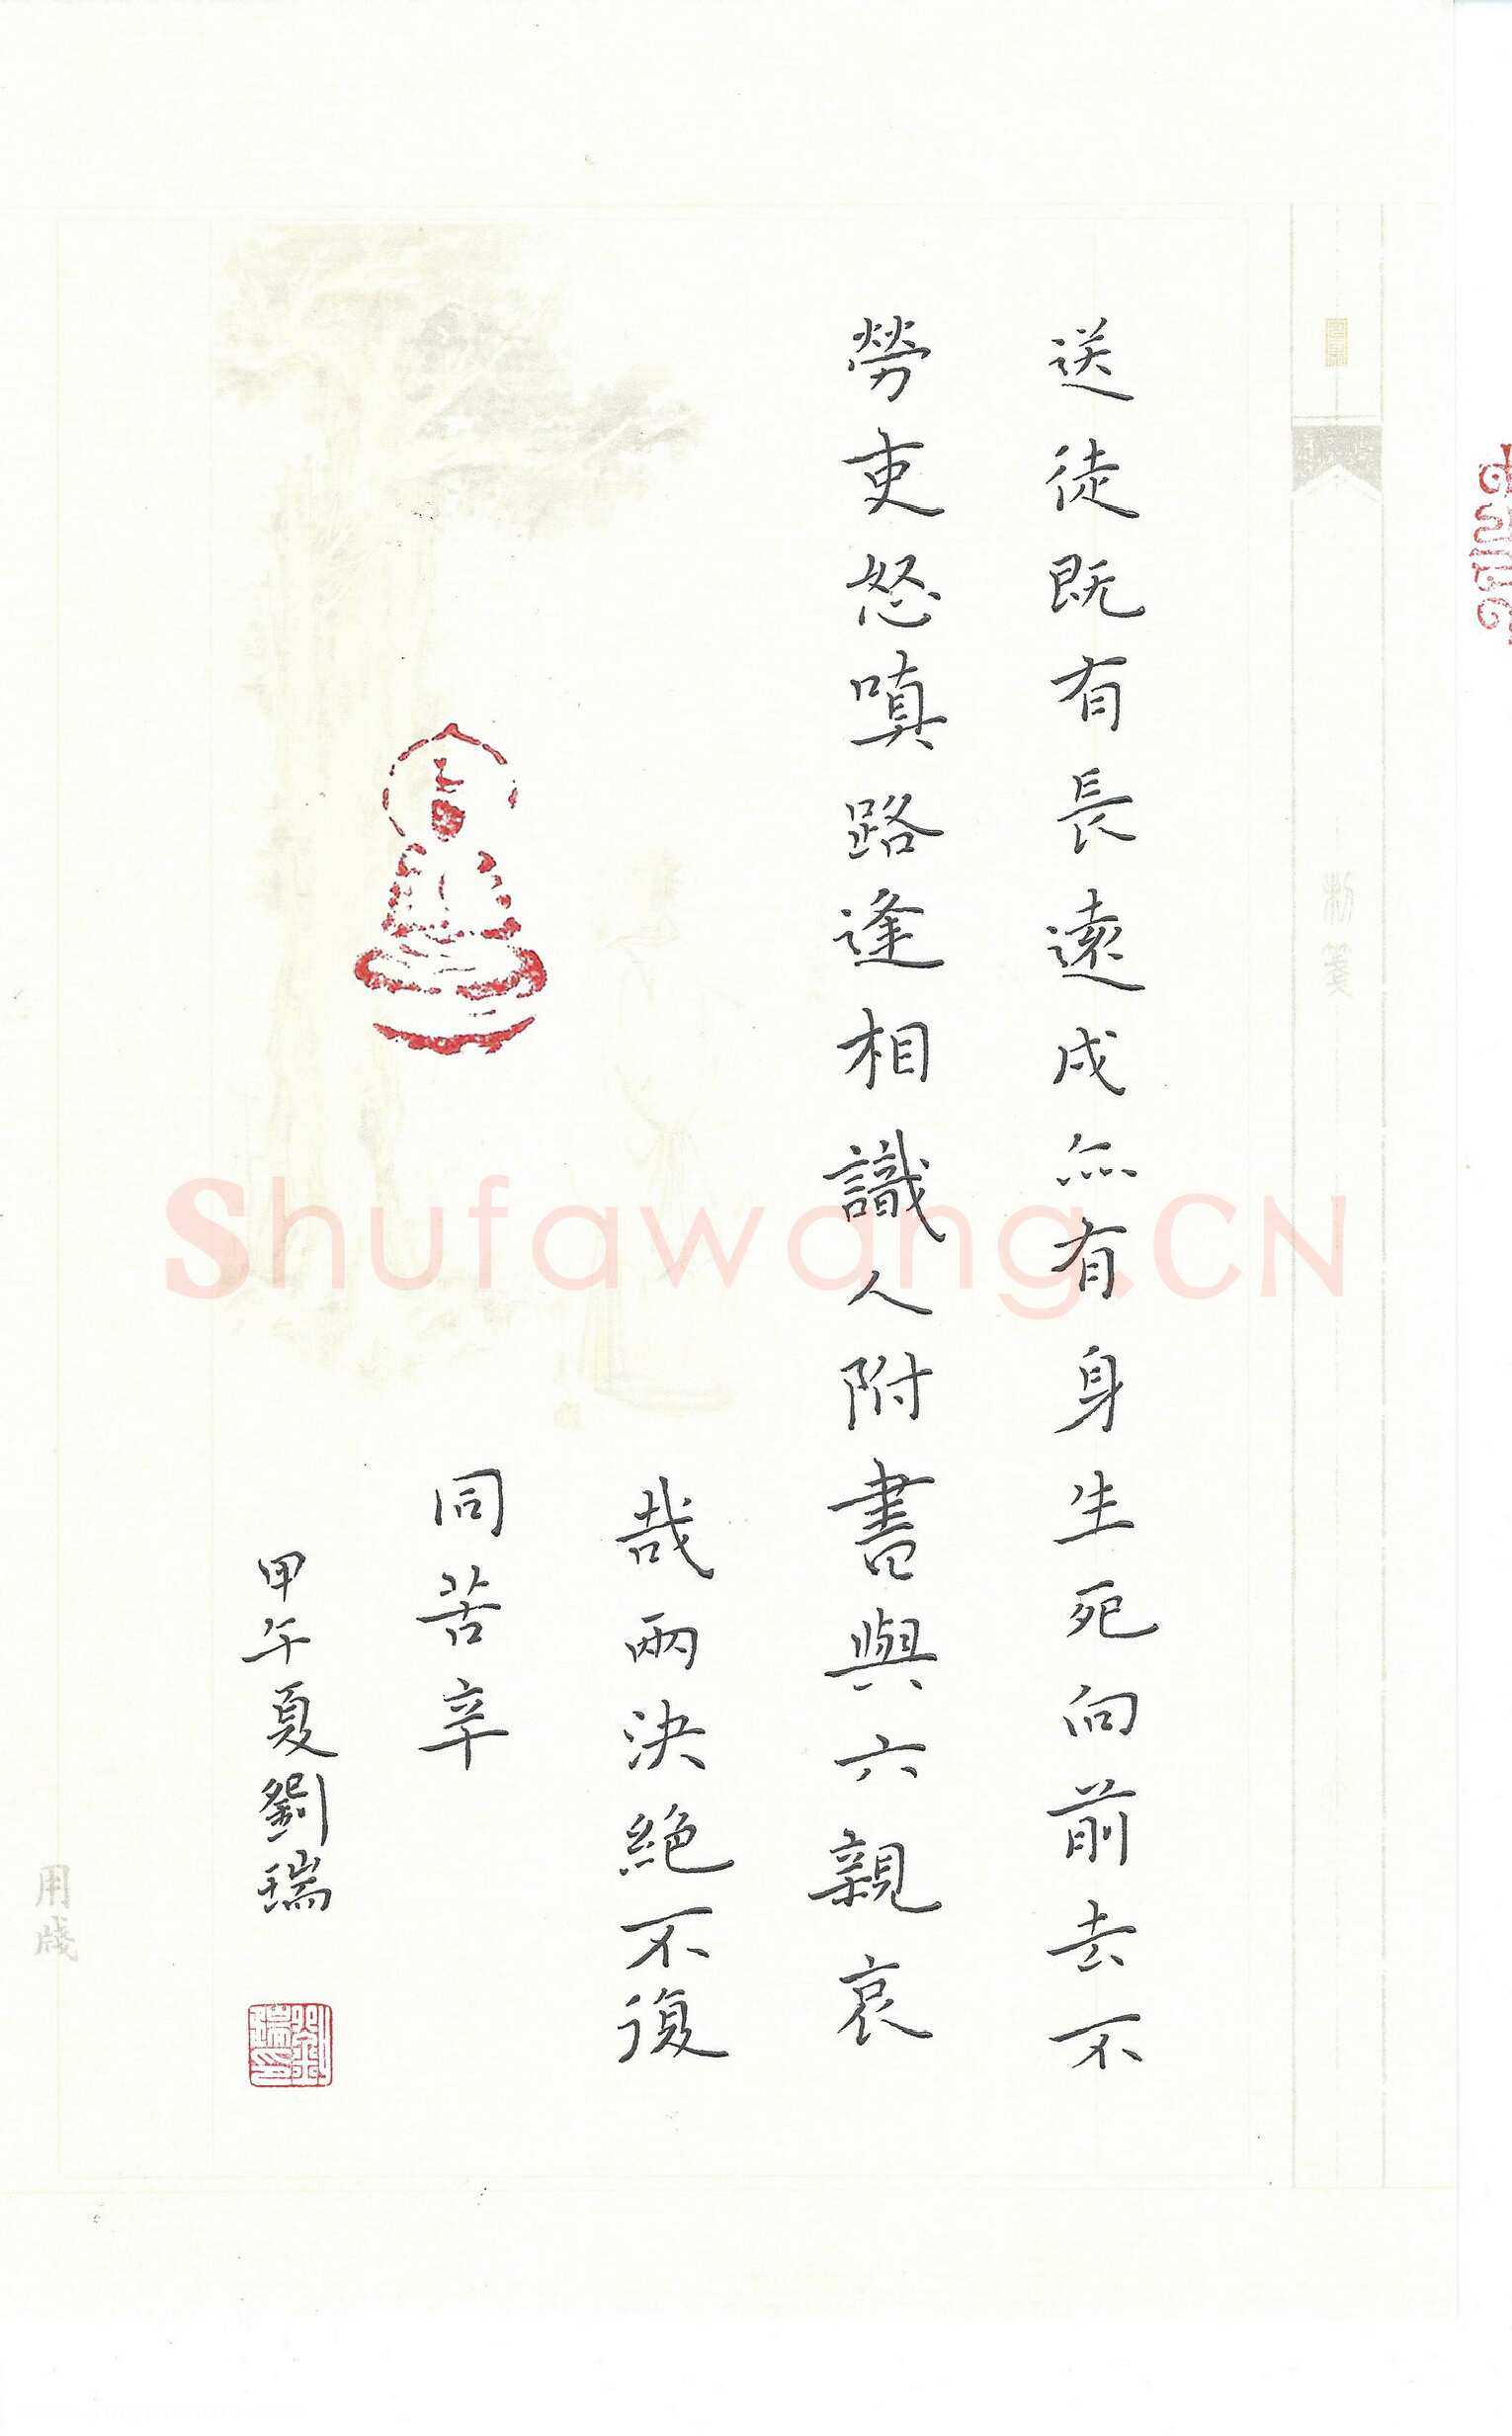 送徒既有長遠戍亦有身生死向前去不
勞吏怒嗔路逢相識人附書與六親哀
哉兩決絕不復
同苦辛
甲午夏劉瑞
劉瑞印
用牋
Shufawang.CN